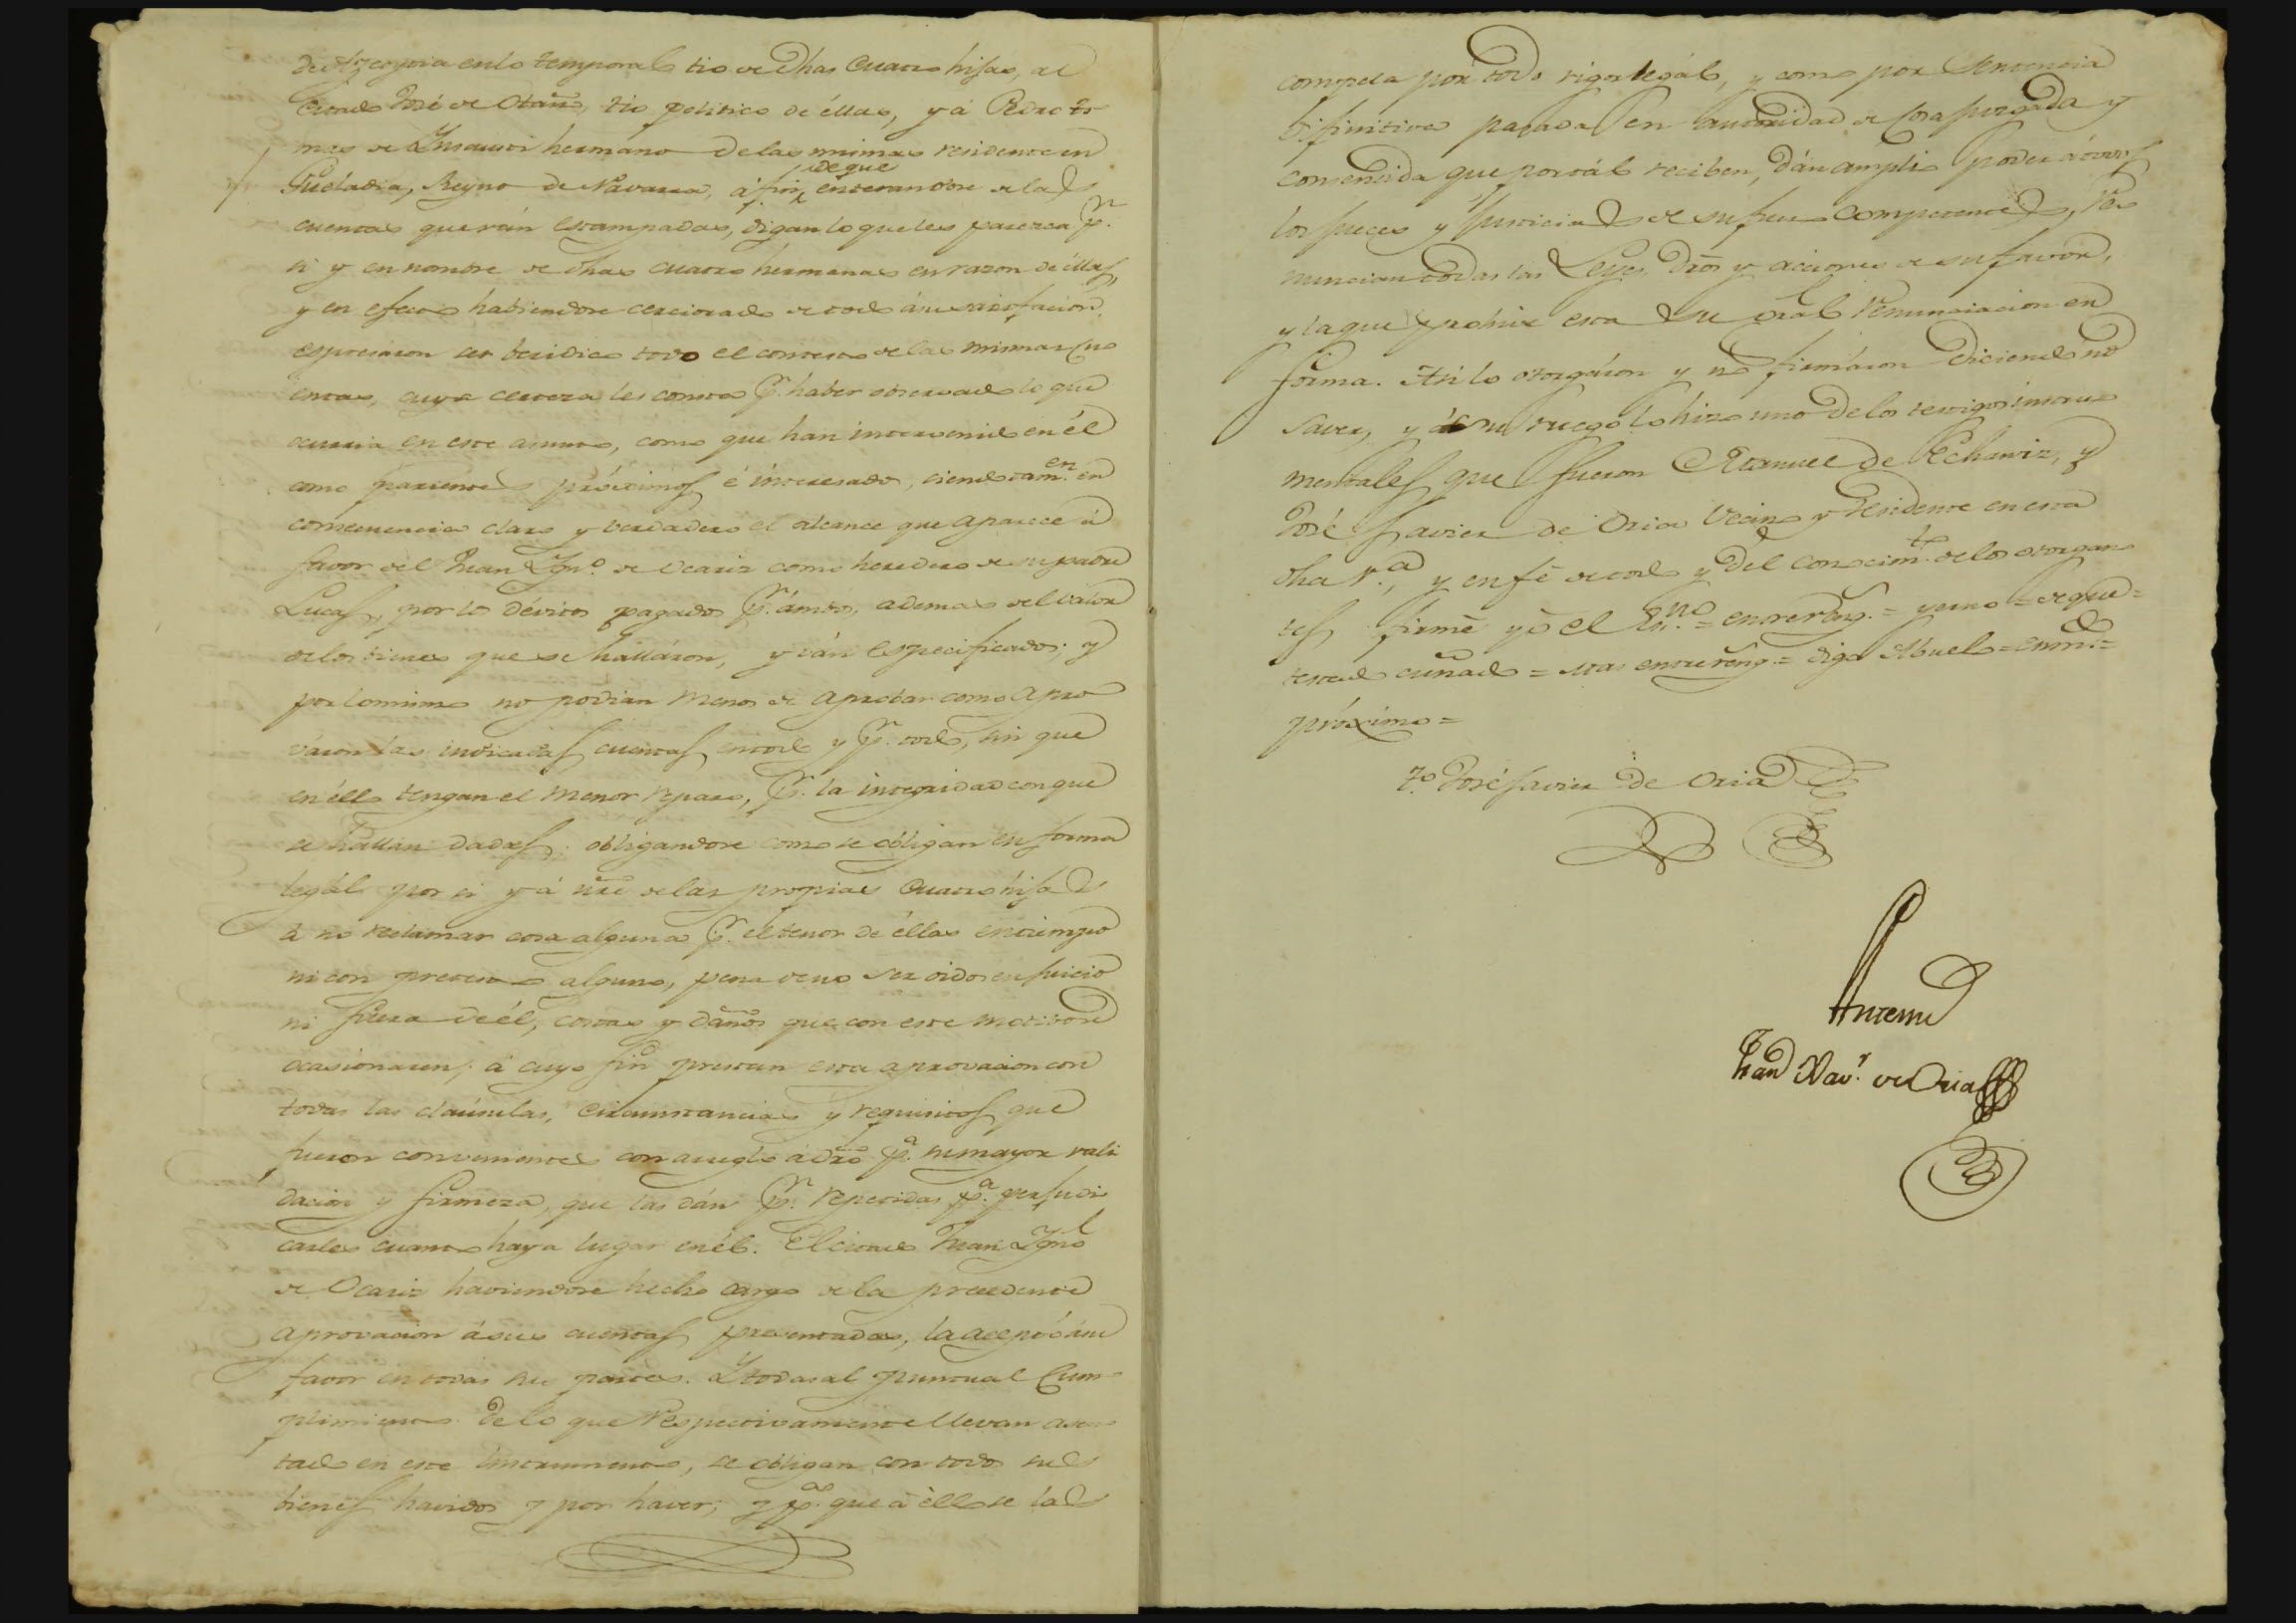 de Azcoytia en lo temporal tio de dhas Cuatro hijas, al
Citado José de Otaño, tio politico de éllas, y á Pedro to
mas de Ynsausti hermano de las mismas residente en
de que
Gueladia, Reyno de Navarra, á fin, enterandose de las
cuentas que ván estampadas, digan lo que les parezca pr.
si y en nombre de dhas cuatro hermanas en razon de éllas,
y en efecto habiendose cerciorado de todo á su satisfacion,
espresaron ser beridico todo el contesto de las mismas Cu
entas, cuya certeza les consta pr. haber observado lo que
ocurria en este asunto, como que han intervenido en él
como parientes próximos é interesados, siendo tamen. en
consecuencia claro y verdadero el alcance que aparece á
favor del Juan Ygno. de Ocariz como heredero de su padre
Lucas, por los dévitos pagados pr. ámbos, ademas del valor
de los bienes que se halláron, y ván especificados; y
por lo mismo no podian menos de aprobar como apro
váron las indicadas cuentas en todo y pr. todo, sin que
en éllo tengan el menor reparo, pr. la integridad con que
se hallan dadas; obligandose como se obligan en forma
legál por si y á nre de las propias Cuatro hijas
á no reclamar cosa alguna pr. el tenor de éllas en tiempo
ni con pretesto alguno, pena de no ser oidos en juicio
ni fuera de él, costas y daños que con este motivo se
ocasionaren; á cuyo fin prestan esta aprovacion con
todas las claúsulas, circunstancias y requisitos que
fueron convenientes con areglo á dro pa. su mayor vali
dacion y firmeza, que las dán pr. repetidas pa. perjudi
carles cuanto haya lugar en él. El citado Juan Ygno
de Ocariz haviendose hecho cargo de la precedente
aprovacion á sus cuentas presentadas, la aceptó á su
favor en todas sus partes. Y todas al puntual Cum
plimiento de lo que respectivamente llevan asen
tado en este instrumento, se obligan con todos sus
bienes havidos y por haver; y pa. que á éllo se las
compela por todo rigor legál, y como por Sentencia
difinitiva pasada en autoridad de Cosa juzgada y
consentida que por tál reciben, dán amplio poder á todos
los jueces y Justicias de su fuero competentes, Re
nuncian todas las Leyes, dros y acciones de su favor,
y la que prohive esta Su gral renunciacion en
forma. Asi lo otorgáron y no firmáron diciendo no
saver, y á su ruego lo hizo uno de los testigos instru
mentales que fueron Manuel de Echaniz, y
José Javier de Oria Vecino y residente en esta
dha Va., y en fé de todo y del Conocimto. de los otorgan
tes, firmé yó el Esno. = entrereng. = yerno = de que =
testado cuñado = otras entrereng. = digo Abuelo = enmdo. =
próximo =
To. José Javier de Oria
Antemi
Juan Xavr. de Oria